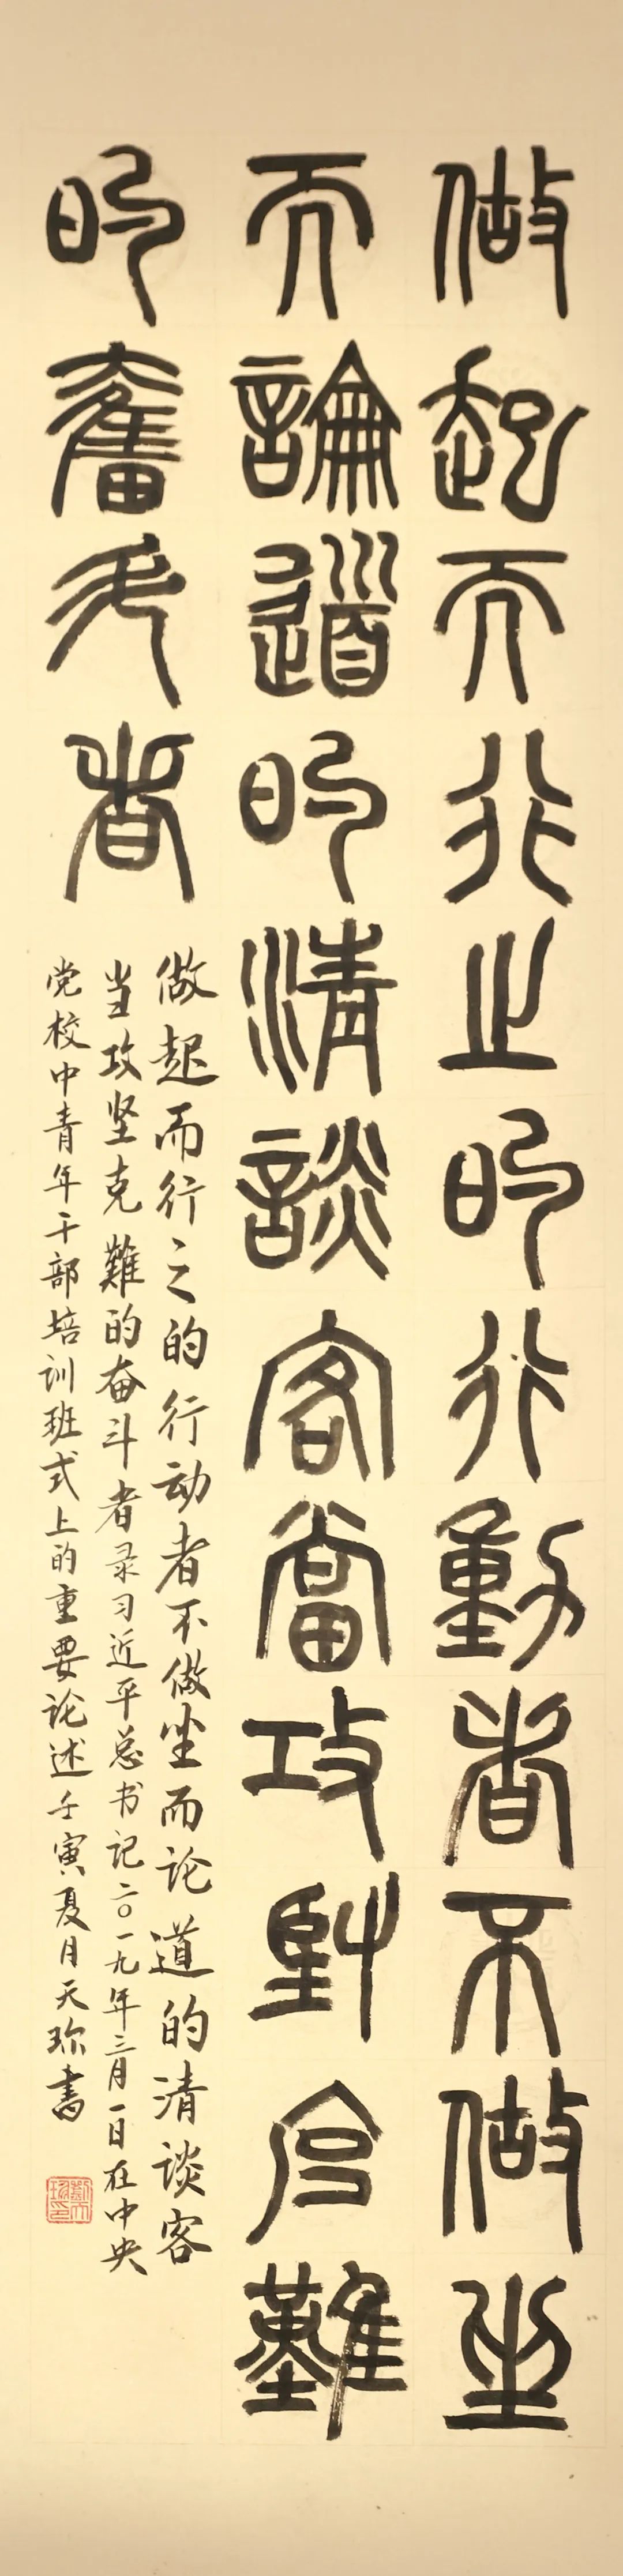 做起而行之的行動者不做坐
而論道的清談客當攻堅克難
的奮斗者
做起而行之的行动者不做坐而论道的清谈客
当攻坚克難的奋斗者录习近平总书记二〇一九年三月一日在中央
党校中青年干部培训班式上的重要论述壬寅夏月天珎書